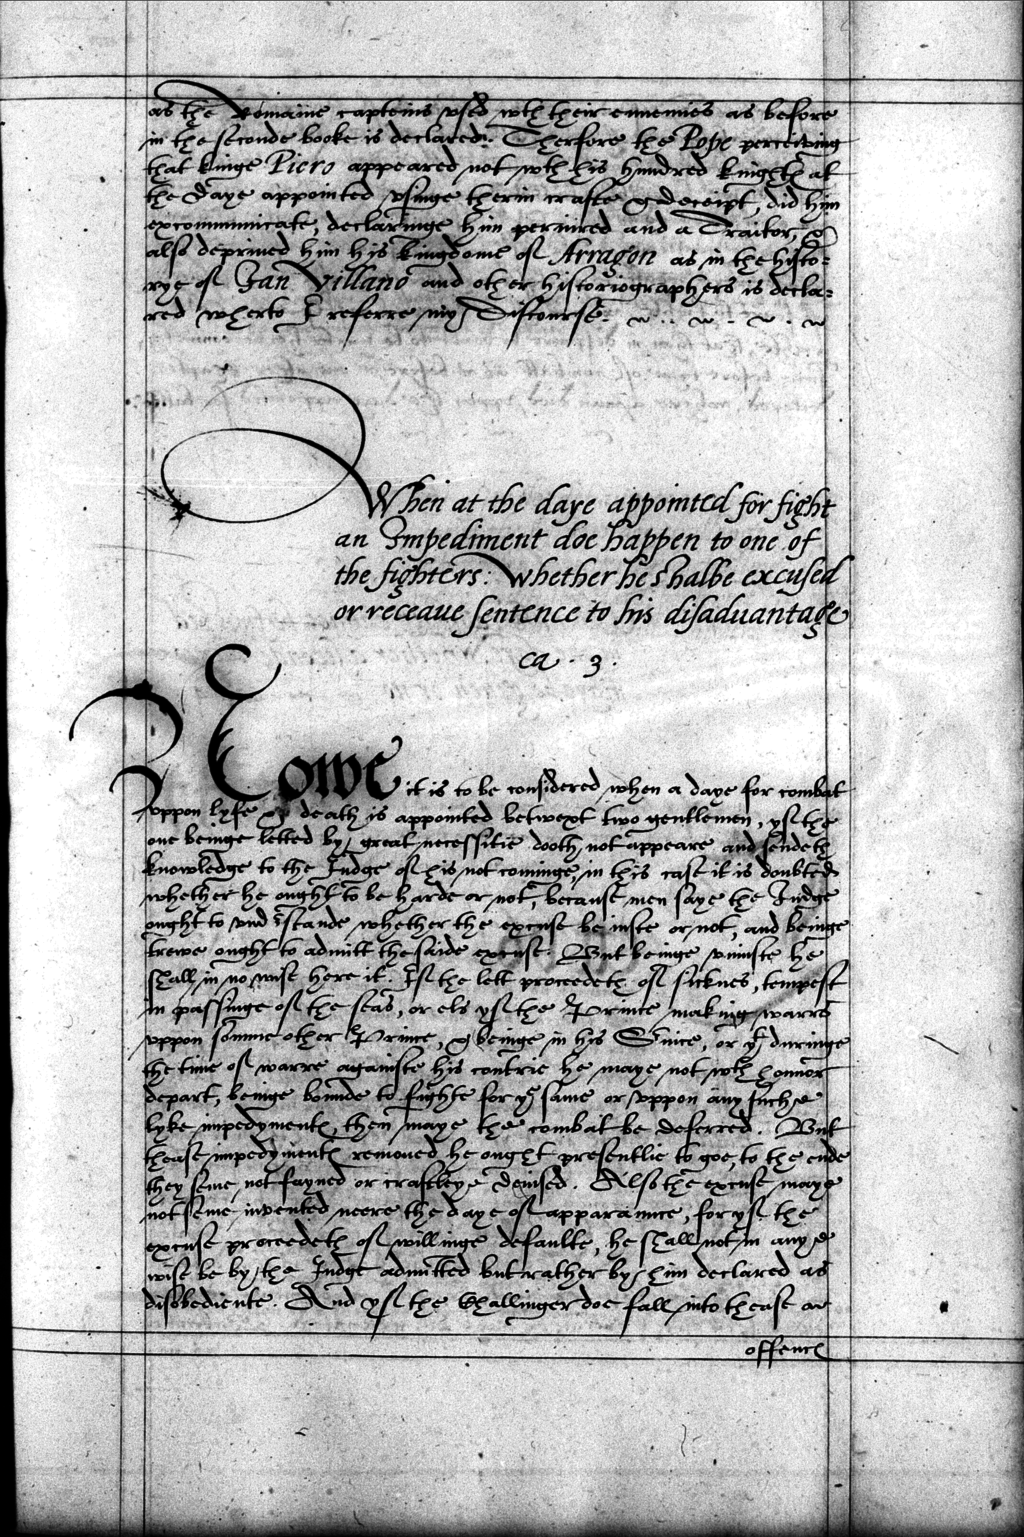 as the Romaine capteins vsed wth their ennemies as before
in the seconde booke is declared. Therfore the Pope perceiving
that kinge Piero appeared not wth his hundred knights at
the daye appointed vsinge therin crafte & deceipt, did him
excommunicate, declaringe him periured and a Traitor, &
also deprived him his kingdome of Arragon as in the histo-
rye of Jan Villano and other historiographers is decla-
red wherto I referre my Discourse.
When at the daye appointed for fight
an Impediment doe happen to one of
the fighters: whether he shalbe excused
or receaue sentence to his disaduantage
ca. 3.
Nowe it is to be considered when a daye for combat
vppon lyfe & death is appointed betwext two gentlemen, yf the
one beinge letted by great necessitie dooth not appeare and sendeth
knowledge to the Judge of his not cominge, in this case it is doubted
whether he ought to be harde or not, because men saye the Judge
ought to vnderstande whether the excuse be iuste or not, and beinge
trewe ought to admitt the saide excuse. But beinge vniuste he
shall in no wise here it. If the lett proceedeth of sicknes, tempest
in passinge of the seas, or els yf the Prince making warre
vppon somme other Prince, & beinge in his Service, or yf duringe
the time of warre againste his contrie he maye not wth honnor
depart, beinge bounde to fighte for ye same or vppon any such
lyke impedyments, then maye the combat be deferred. But
thease impedyments removed he ought presentlie to goe, to the ende
they seme not fayned or craftelye devised. Also the excuse maye
not seme invented neere the daye of apparannce, for yf the
excuse proceedeth of willinge defaulte, he shall not in any
wise be by the Judge admitted but rather by him declared as
disobediente. And yf the Challinger doe fall into thease
offences